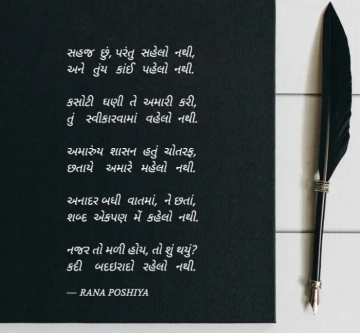 સહજ છું, પરંતુ સહેલો નથી,
અને તુંય કાંઈ પહેલો નથી.
કસોટી ઘણી તે અમારી કરી,
તું સ્વીકારવામાં વહેલો નથી.
અમારુંય શાસન હતું ચોતરફ,
છતાયે અમારે મહેલો નથી.
અનાદર બધી વાતમાં, ને છતાં,
શબ્દ એકપણ મેં કહેલો નથી.
નજર તો મળી હોય, તો શું થયું?
કદી બદઇરાદો રહેલો નથી.
— RANA POSHIYA